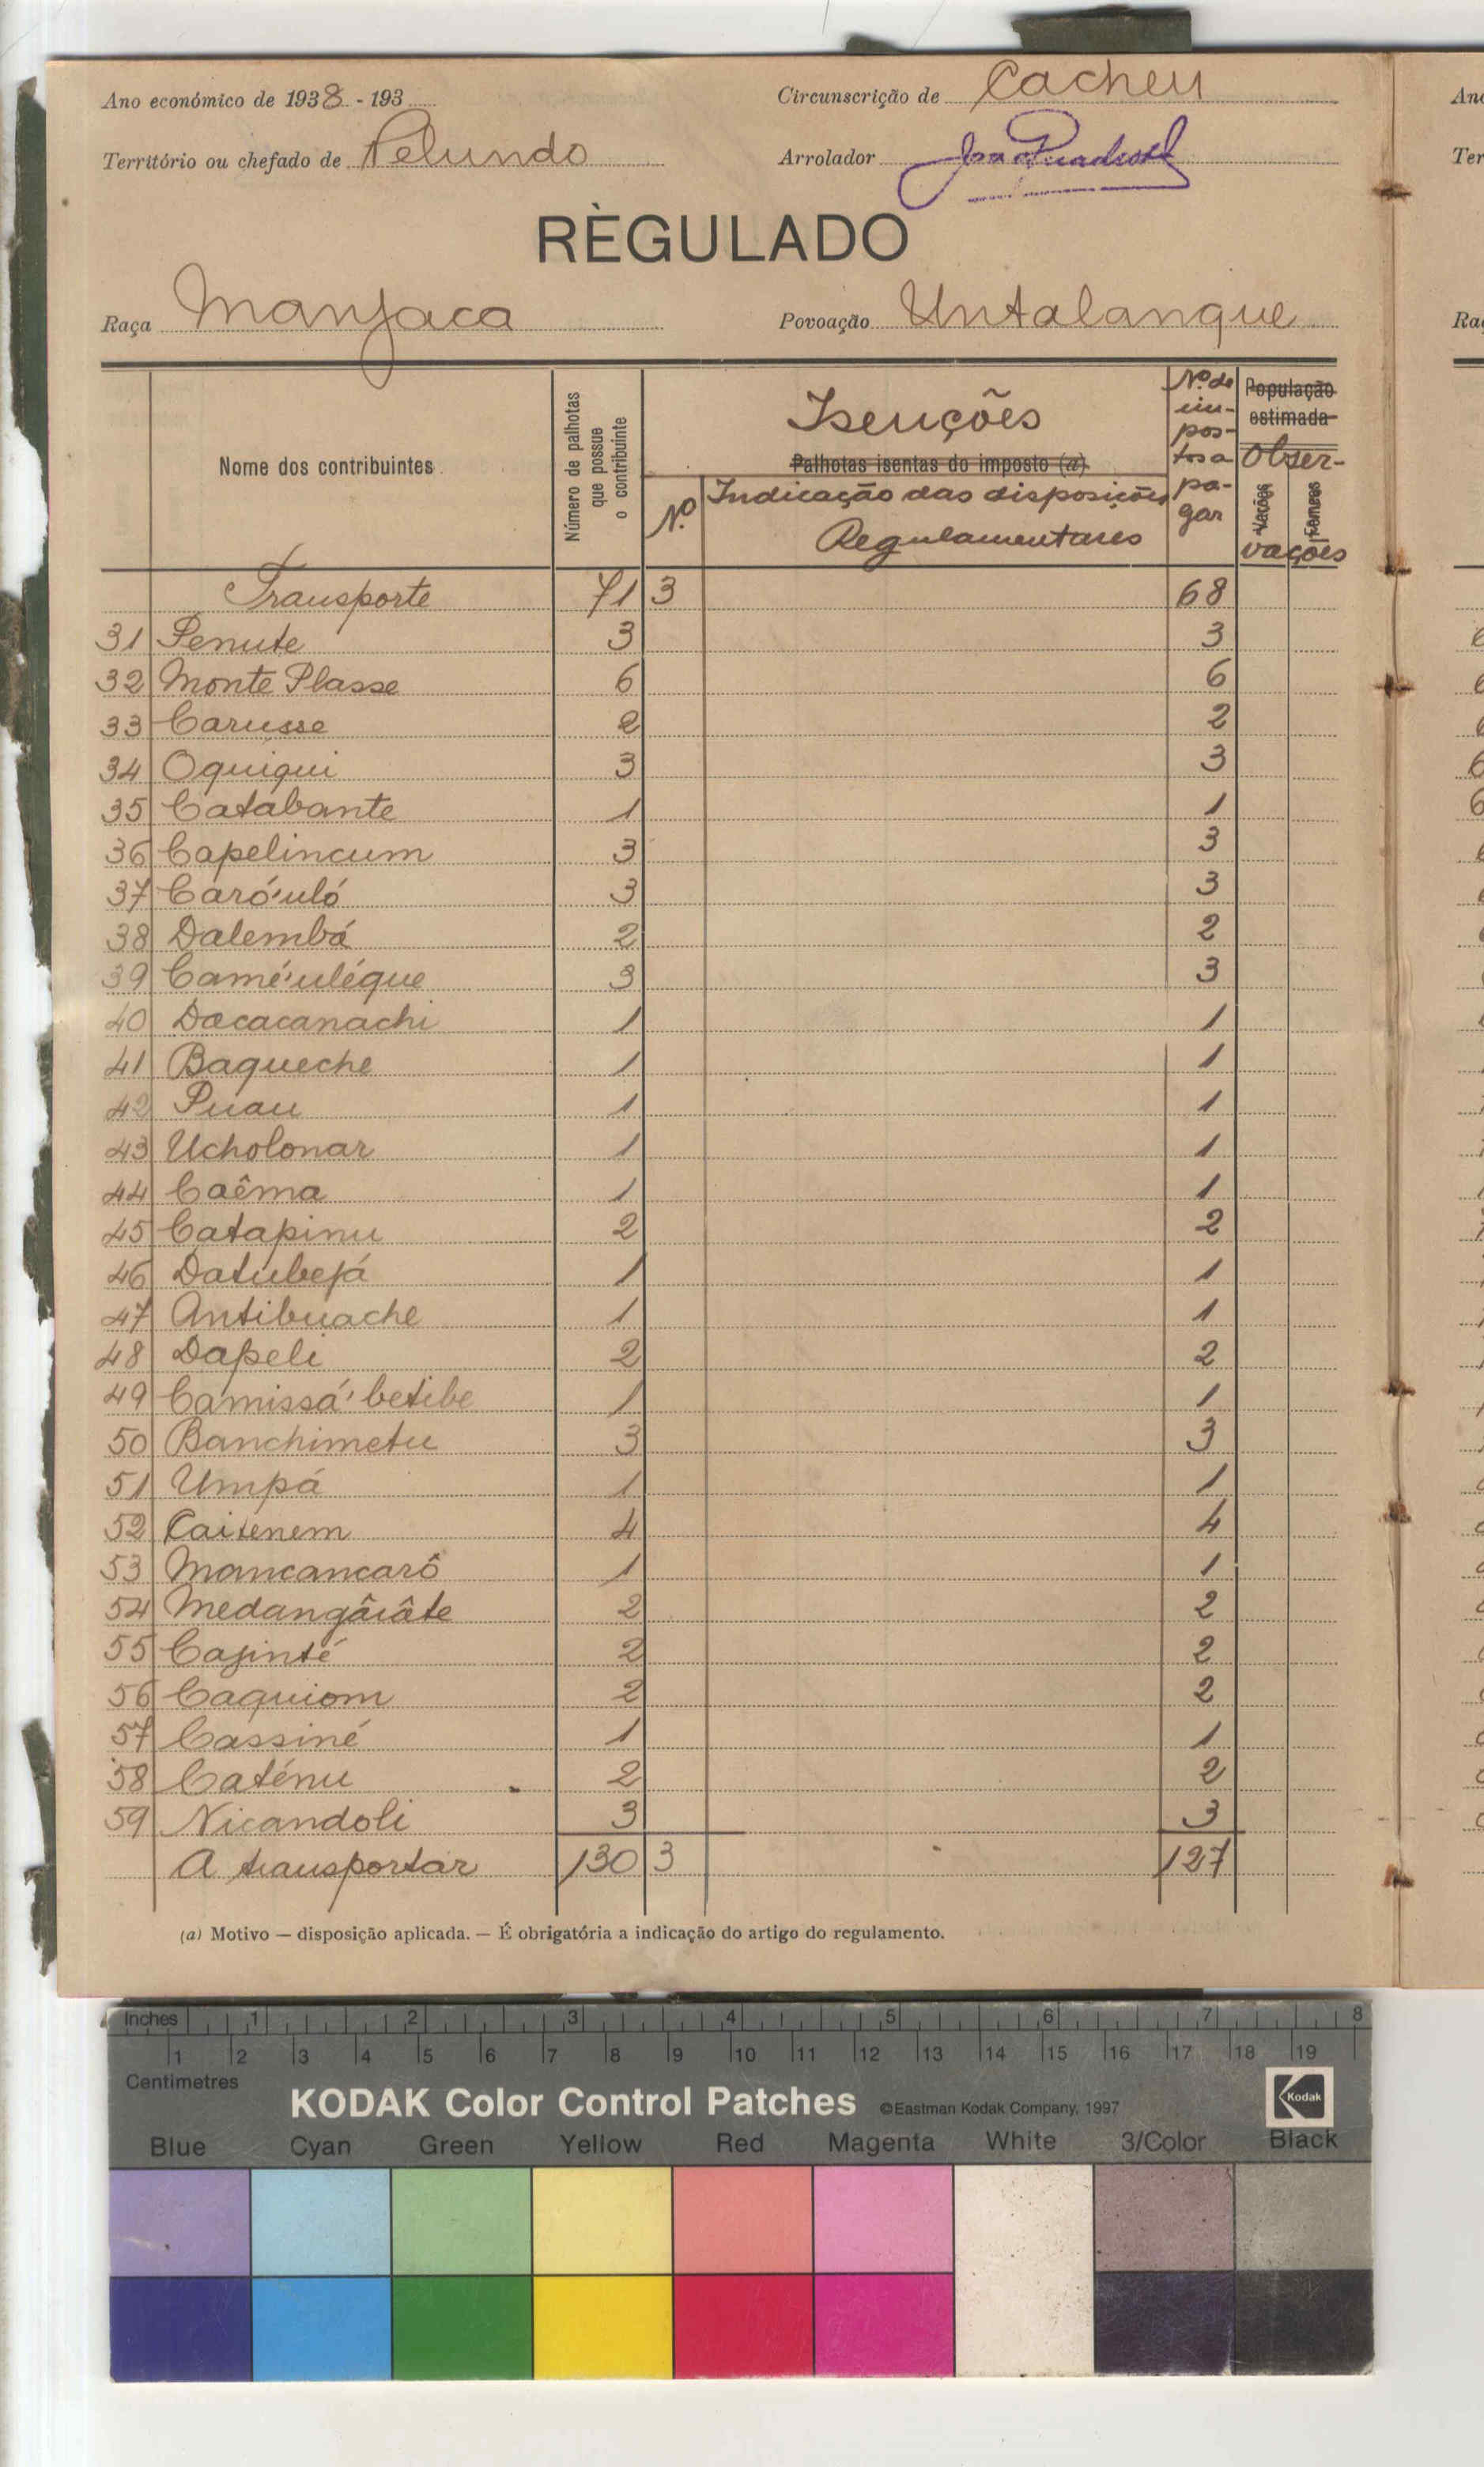 Ano económico de 1938 - 193
Circunscrição de Cacheu
Território ou chefado de Pelundo
Arrolador
RÈGULADO
Raça Manjaca
Povoação Untalanque
Nome dos contribuintes
Número de palhotas que possue o contribuinte
Isenções
Palhotas isentas do imposto (a)
Nº
Indicação das disposições Regulamentares
Nº de impostos a pagar
População estimada
Observações
Varões
Femeas
Transporte 71 3 68
31 Penute 3 3
32 Monte Plasse 6 6
33 Carusse 2 2
34 Oquiqui 3 3
35 Catabante 1 1
36 Capelincum 3 3
37 Caró'uló 3 3
38 Dalembá 2 2
39 Camé'uléque 3 3
40 Dacacanachi 1 1
41 Baqueche 1 1
42 Puau 1 1
43 Ucholonar 1 1
44 Caêma 1 1
45 Catapinu 2 2
46 Datubejá 1 1
47 Antibuache 1 1
48 Dapeli 2 2
49 Camissá' betibe 1 1
50 Banchimetu 3 3
51 Umpá 1 1
52 Caitenem 4 4
53 Mancancarô 1 1
54 Medangâiâte 2 2
55 Cajinté 2 2
56 Caquiom 2 2
57 Cassiné 1 1
58 Caténu 2 2
59 Nicandoli 3 3
A transportar 130 3 127
(a) Motivo — disposição aplicada. — É obrigatória a indicação do artigo do regulamento.
Inches 1 2 3 4 5 6 7 8
1 2 3 4 5 6 7 8 9 10 11 12 13 14 15 16 17 18 19
Centimetres
KODAK Color Control Patches ©Eastman Kodak Company, 1997 Kodak
Blue Cyan Green Yellow Red Magenta White 3/Color Black